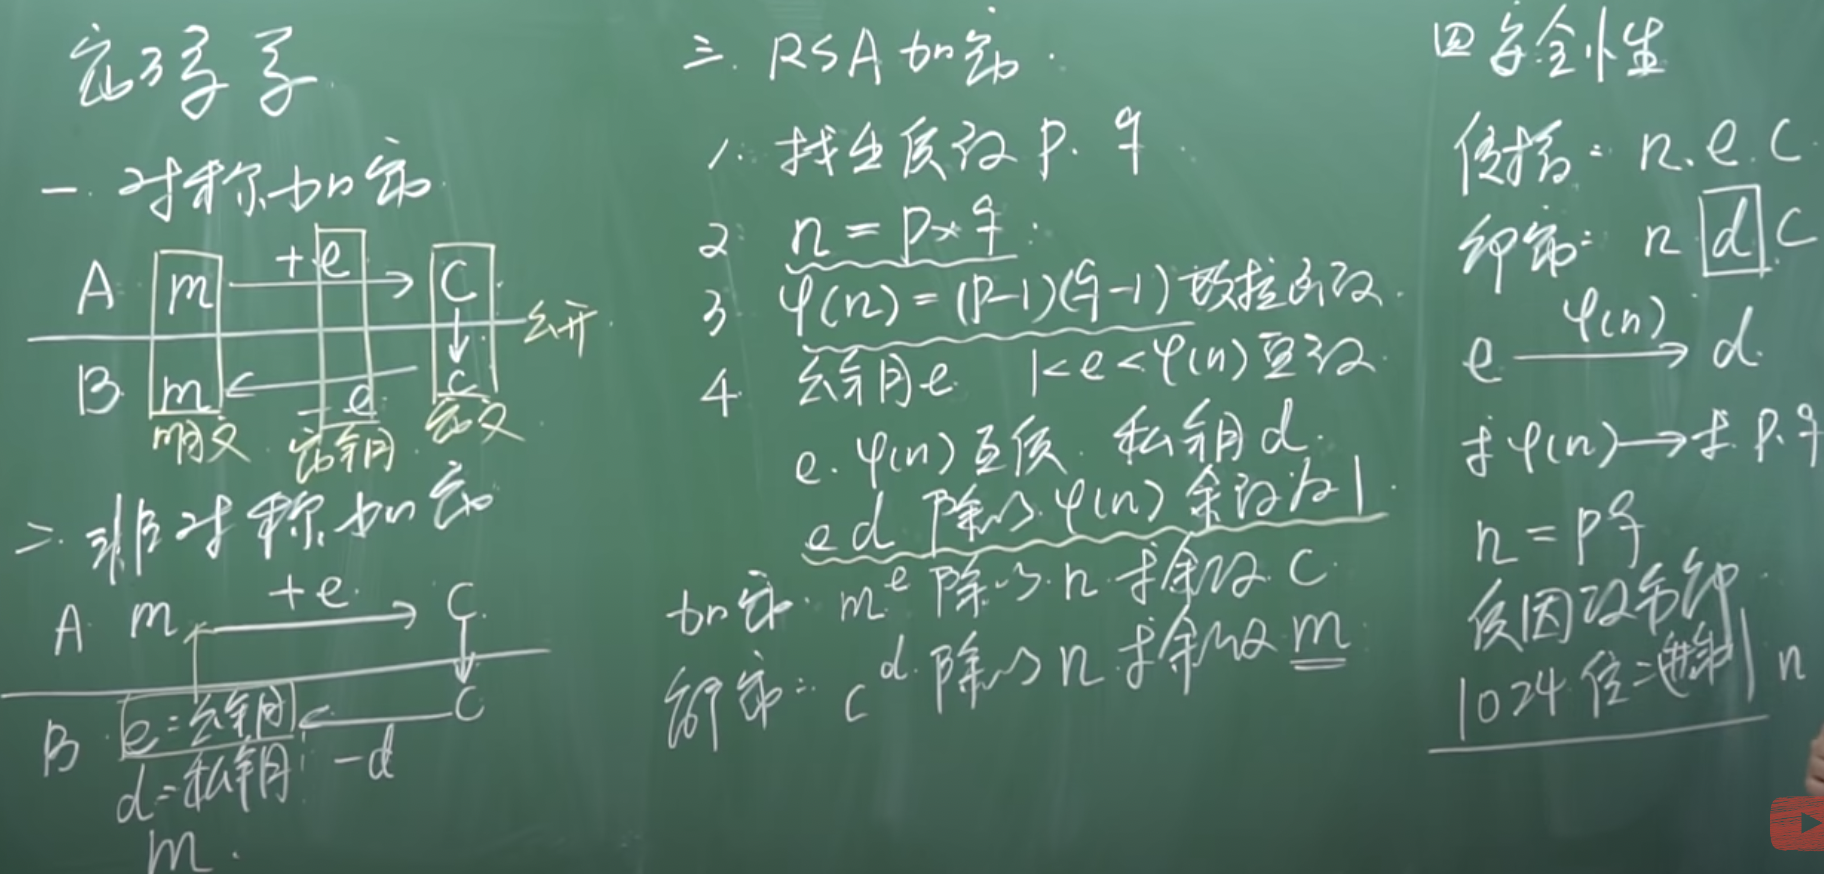 密码学
一. 对称加密
A m +e C
公开
B m -e C
明文 密钥 密文
二. 非对称加密
A m +e C
B e=公钥 C
d=私钥 -d
m.
三. RSA加密.
1. 找出质数 p. q
2 n = p×q
3 φ(n)=(p-1)(q-1) 欧拉函数
4 公钥e 1<e<φ(n)互数
e. φ(n)互质. 私钥d.
ed 除以φ(n)余数为1
加密: m^e 除以n求余数 C
解密: c^d 除以n求余数 m
四安全性
传播: n. e. C
解密: n d C
e φ(n) → d
求φ(n)→求p. q
n = pq
质因数分解
1024位二进制 n